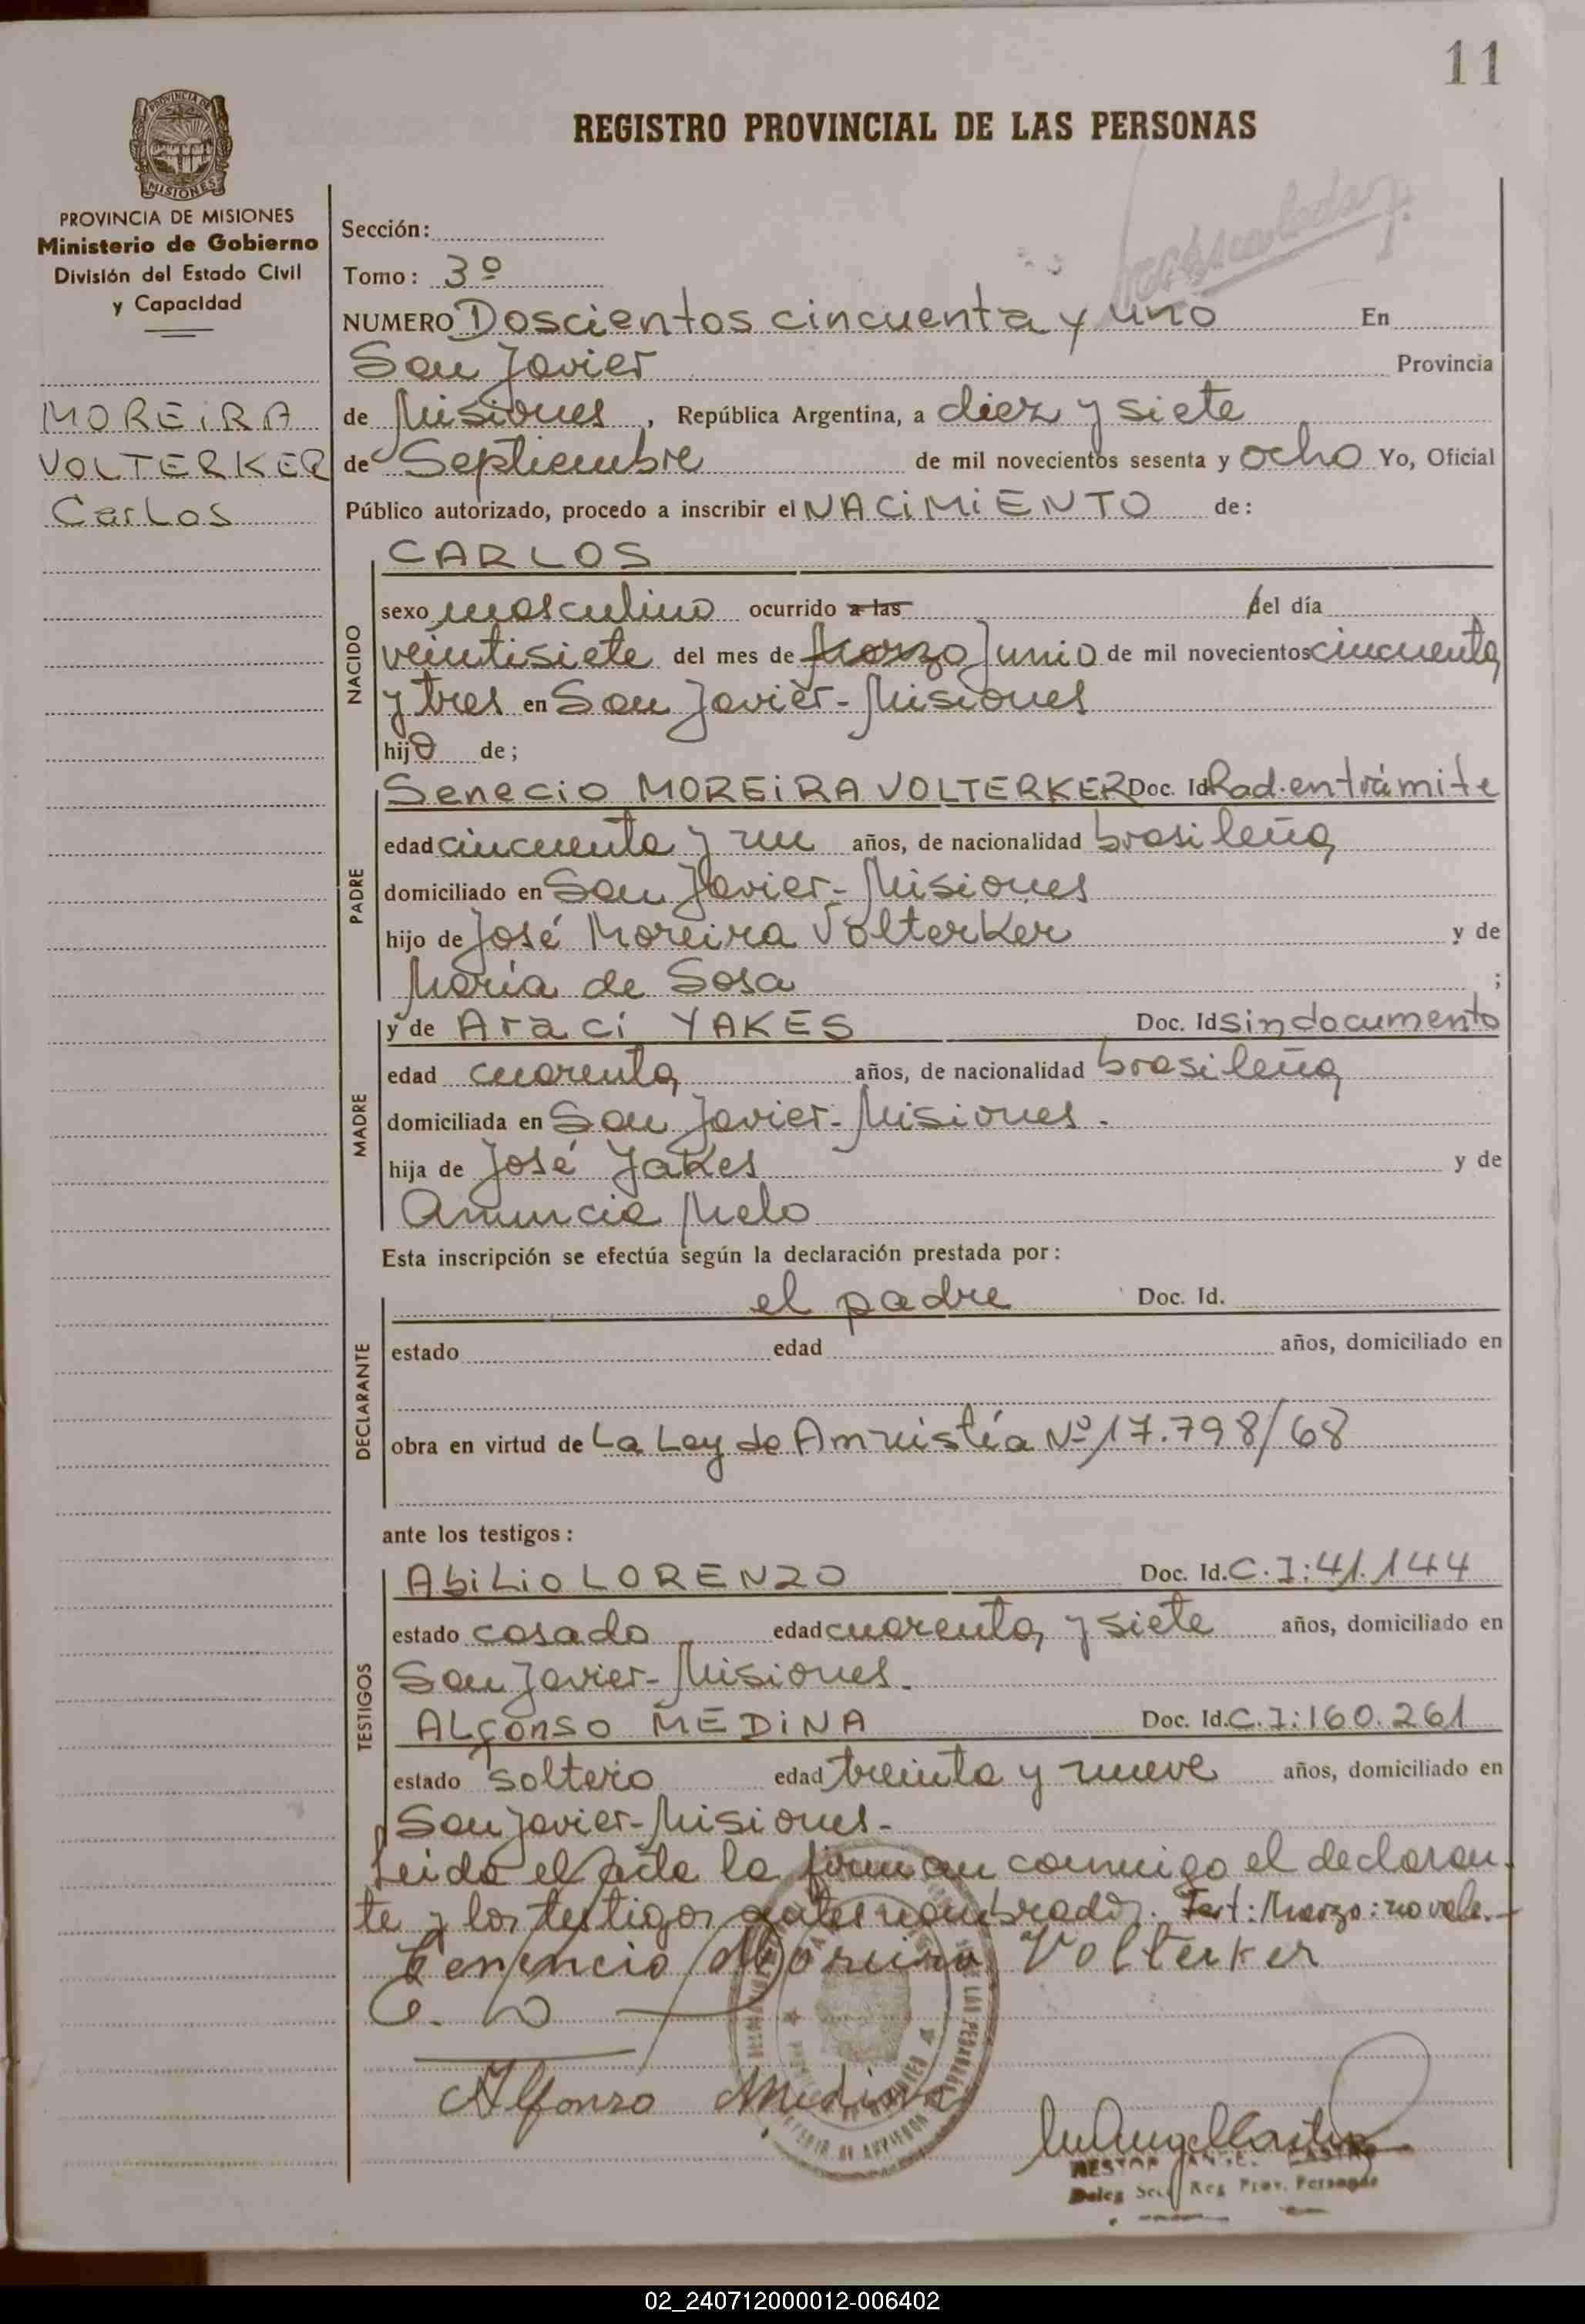 11
REGISTRO PROVINCIAL DE LAS PERSONAS
PROVINCIA DE
MISIONES
PROVINCIA DE MISIONES
Ministerio de Gobierno
División del Estado Civil
y Capacidad
MOREIRA
VOLTERKER
Carlos
Sección:
Tomo: 3º
NUMERO Doscientos cincuenta y uno En
San Javier Provincia
de Misiones, República Argentina, a diez y siete
de Septiembre de mil novecientos sesenta y ocho Yo, Oficial
Público autorizado, procedo a inscribir el NACIMIENTO de:
NACIDO
CARLOS
sexo masculino ocurrido a las del día
veintisiete del mes de Marzo Junio de mil novecientos cincuenta
y tres en San Javier-Misiones
hijo de;
PADRE
Senecio MOREIRA VOLTERKER Doc. Id Rad. en trámite
edad cincuenta y un años, de nacionalidad brasileña
domiciliado en San Javier-Misiones
hijo de José Moreira Volterker y de
María de Sosa ;
MADRE
y de Araci YAKES Doc. Id sin documento
edad cuarenta años, de nacionalidad brasileña
domiciliada en San Javier-Misiones.
hija de José Yakes y de
Anuncia Melo
Esta inscripción se efectúa según la declaración prestada por:
DECLARANTE
el padre Doc. Id.
estado edad años, domiciliado en
obra en virtud de La Ley de Amnistía Nº 17.798/68
ante los testigos:
TESTIGOS
Abilio LORENZO Doc. Id. C.I: 41.144
estado casado edad cuarenta y siete años, domiciliado en
San Javier-Misiones.
ALfonso MEDINA Doc. Id. C.I: 160.261
estado soltero edad treinta y nueve años, domiciliado en
San Javier-Misiones-
Leida el acta la firman conmigo el declaran-
te y los testigos antes nombrados. Test: Marzo: no vale.-
Moreira Volterker
Alfonso Medina
Deleg Secc Reg Prov. Personas
02_240712000012-006402